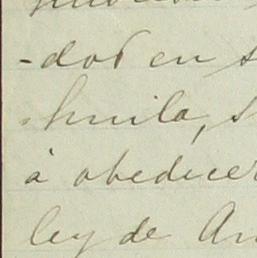 -dos en s
-huila, s
à obedecer
ley de An